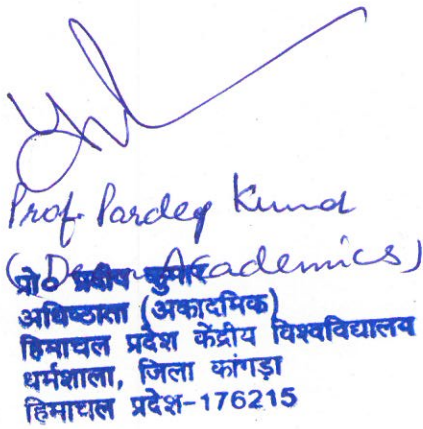 Prof. Pardeep Kumar
(Dean Academics)
प्रो० प्रदीप कुमार
अधिष्ठाता (अकादमिक)
हिमाचल प्रदेश केंद्रीय विश्वविद्यालय
धर्मशाला, जिला कांगड़ा
हिमाचल प्रदेश-176215